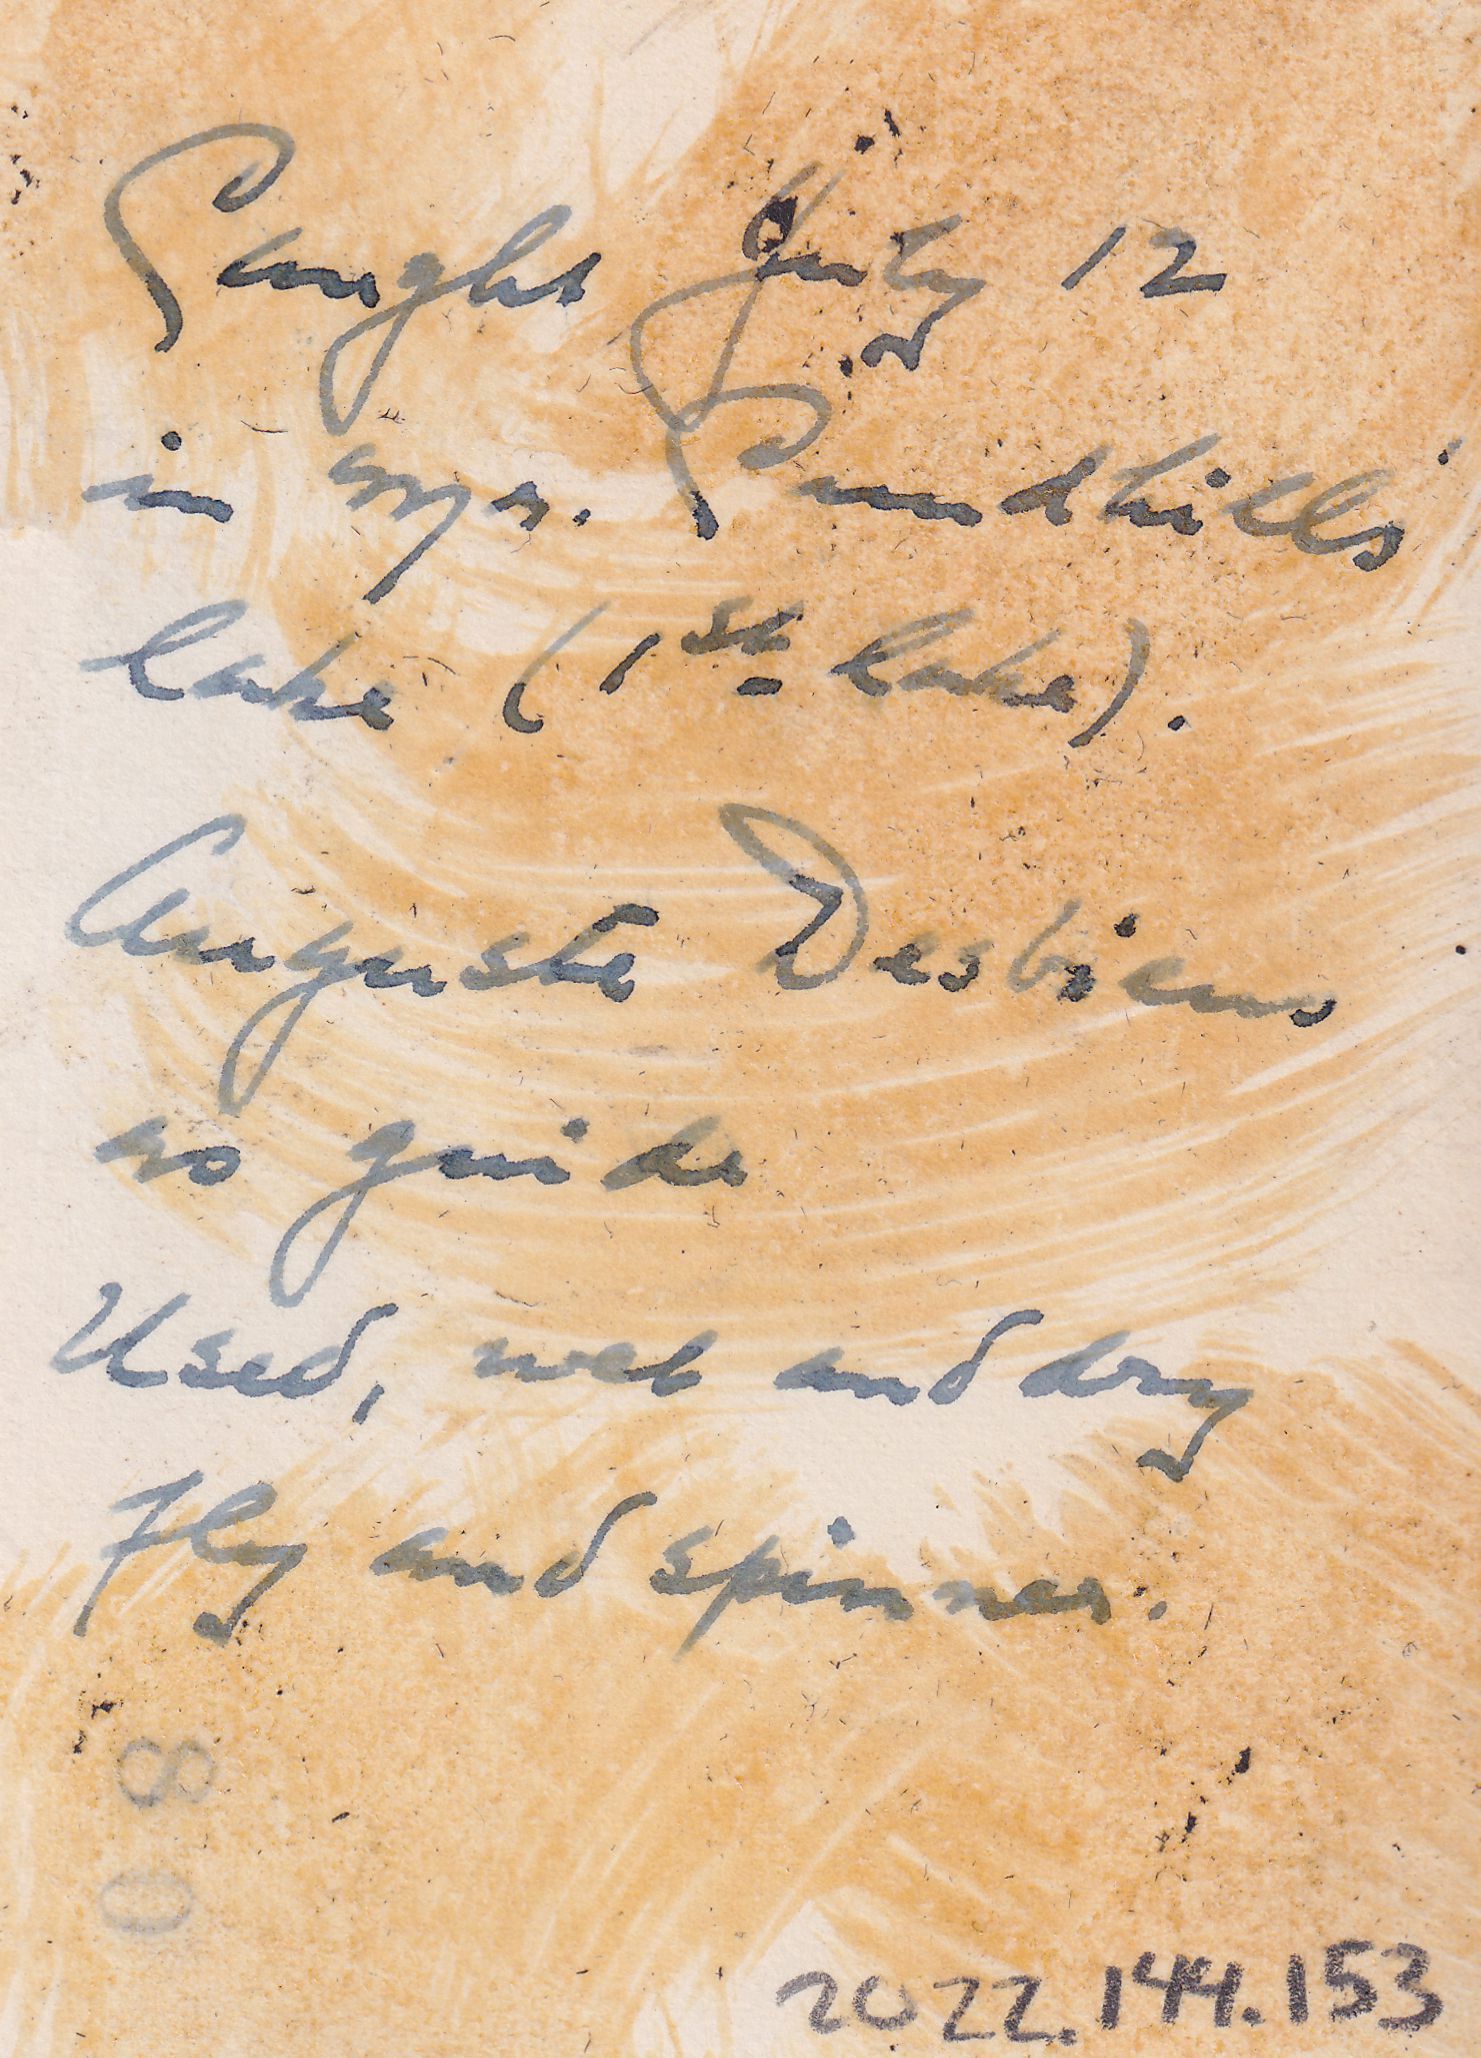 Caught July 12
in Mr. Candhills'
lake (1st lake).
Auguste Desbiens
as guide
Used, wet and dry
fly and spinner.
08
2022.144.153